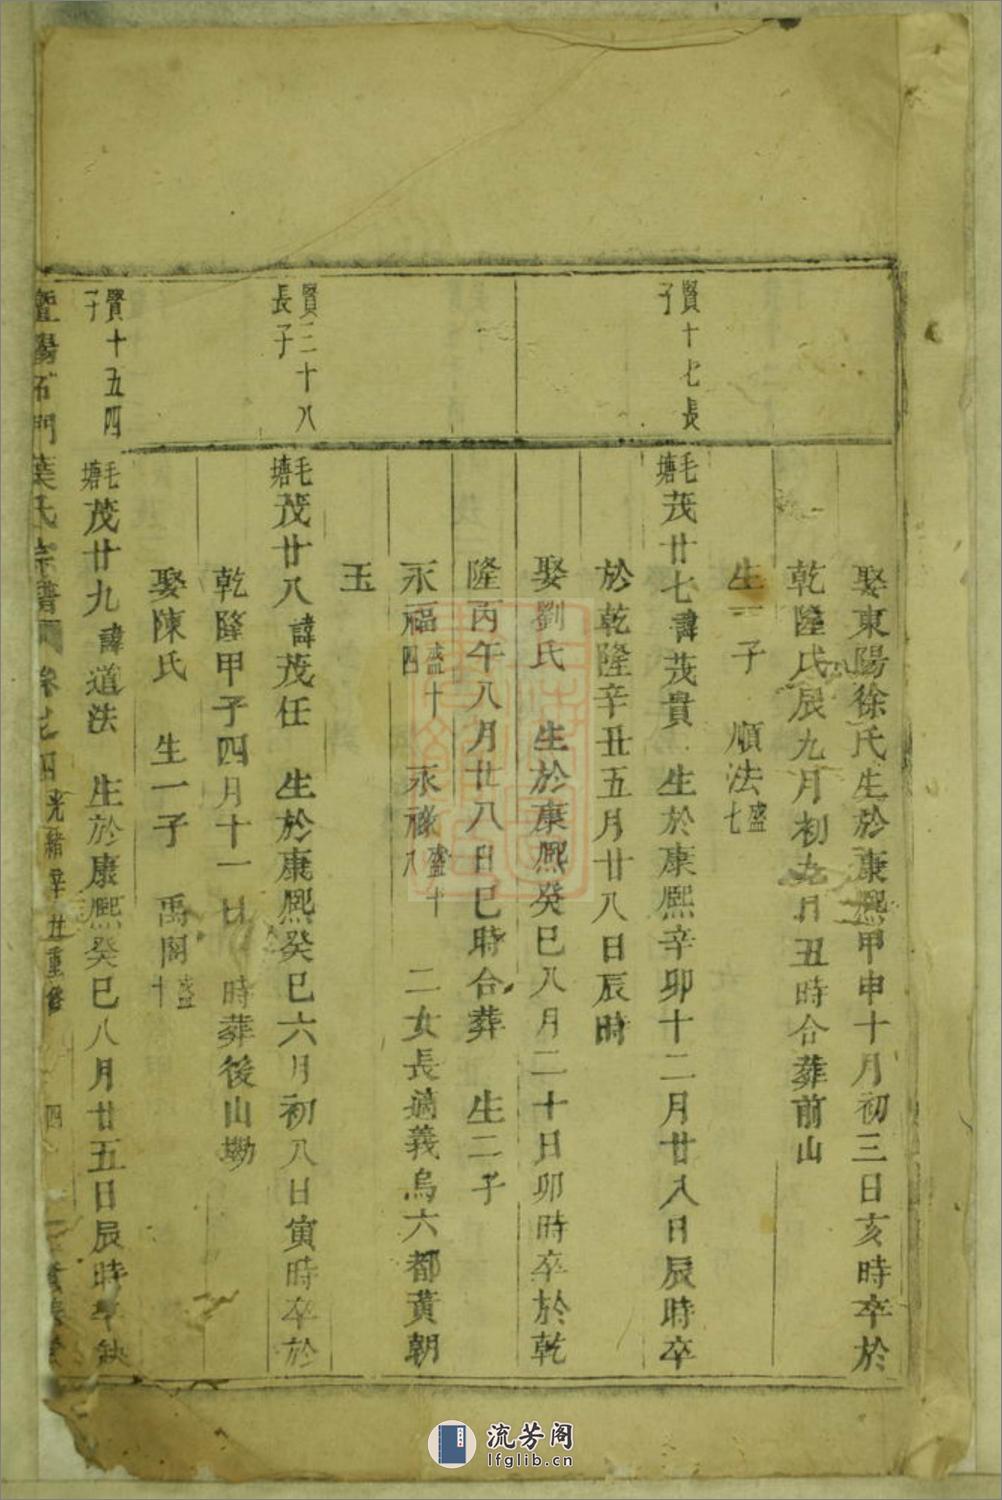 娶東陽徐氏生於康熙甲申十月初三日亥時卒於
乾隆戊辰九月初九日丑時合葬前山
生一子　順法盛七
賢十七長子
毛塘茂廿七諱茂貴　生於康熙辛卯十二月廿八日辰時卒
於乾隆辛丑五月廿八日辰時
娶劉氏　生於康熙癸巳八月二十日卯時卒於乾
隆丙午八月廿八日巳時合葬　生二子
永福盛十四　永祿盛十八　二女長適義烏六都黃朝
玉
賢二十八長子
毛塘茂廿八諱茂任　生於康熙癸巳六月初八日寅時卒於
乾隆甲子四月十一日　時葬後山塢
娶陳氏　生一子　禹閣盛十
賢十五四子
毛塘茂廿九諱道法　生於康熙癸巳八月廿五日辰時卒缺
暨陽石門葉氏宗譜　卷之四　光緒辛丑重修　四
流芳阁
lfglib.cn